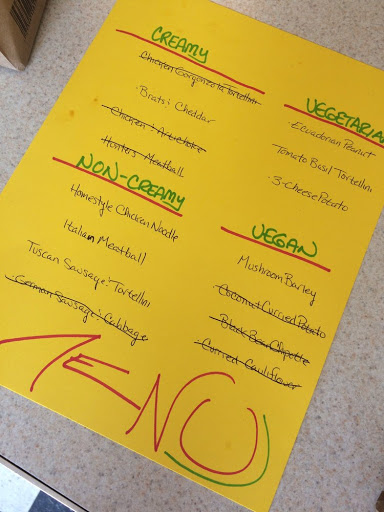 CREAMY
Chicken Gorgonzola Tortellini
· Brats & Cheddar
Chicken & Artichoke
Hunters Meatball
NON-CREAMY
Homestyle Chicken Noodle
Italian Meatball
Tuscan Sausage & Tortellini
German Sausage & Cabbage
VEGETARIAN
· Ecuadorian Peanut
Tomato Basil Tortellini
· 3-Cheese Potato
VEGAN
Mushroom Barley
Coconut Curried Potato
Black Bean Chipotle
Curried Cauliflower